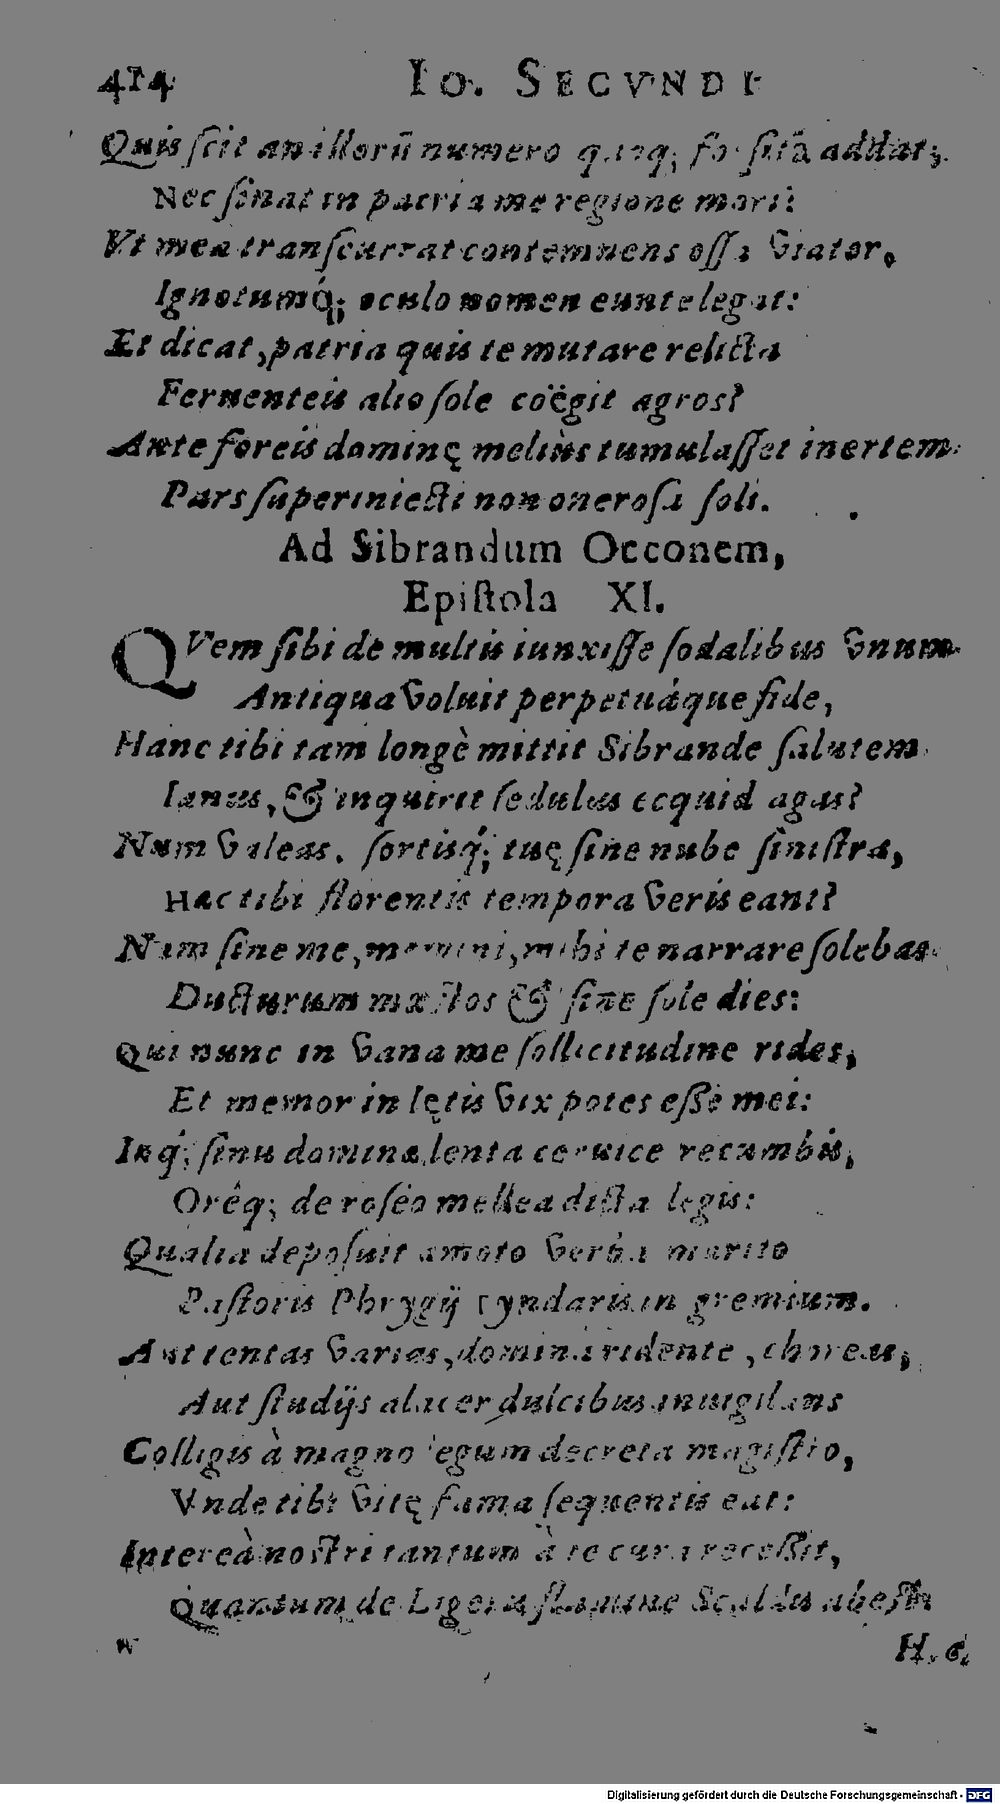 414 IO. SECVNDI
Quis scit an illorū numero quoq; fors itā addat;
Nec sinat in patria me regione mori:
Vt mea transcurrat contemnens ossa viator,
Ignotumq́; oculo nomen eunte legat:
Et dicat, patria quis te mutare relicta
Ferventeis alio sole coëgit agros?
Ante foreis dominę meliùs tumulasset inertem
Pars superiniecti non onerosa soli.
Ad Sibrandum Occonem,
Epistola XI.
QVem sibi de multis iunxisse sodalibus vnum
Antiqua voluit perpetuáque fide,
Hanc tibi tam longè mittit Sibrande salutem
Ianus, & inquirit sedulus ecquid agas?
Num valeas. sortisq́; tuę sine nube sinistra,
Hac tibi florentis tempora veris eant?
Nam sine me, memini, mihi te narrare solebas
Ducturum mæstos & sine sole dies:
Qui nunc in vana me sollicitudine rides,
Et memor in lętis vix potes esse mei:
Inq́; sinu dominæ lenta ceruice recumbis,
Orêq; de roseo mellea dicta legis:
Qualia deposuit amoto verba marito
Pastoris Phrygij Tyndaris in gremium.
Aut tentas varias, domina ridente, choreas,
Aut studijs alacer dulcibus inuigilans
Colligis à magno legum decreta magistro,
Vnde tibi vitę fama sequentis eat:
Intereà nostri tantum à te cura recessit,
Quantum de Ligeris flumine Scaldis abest.
H. c.
Digitalisierung gefördert durch die Deutsche Forschungsgemeinschaft - DFG